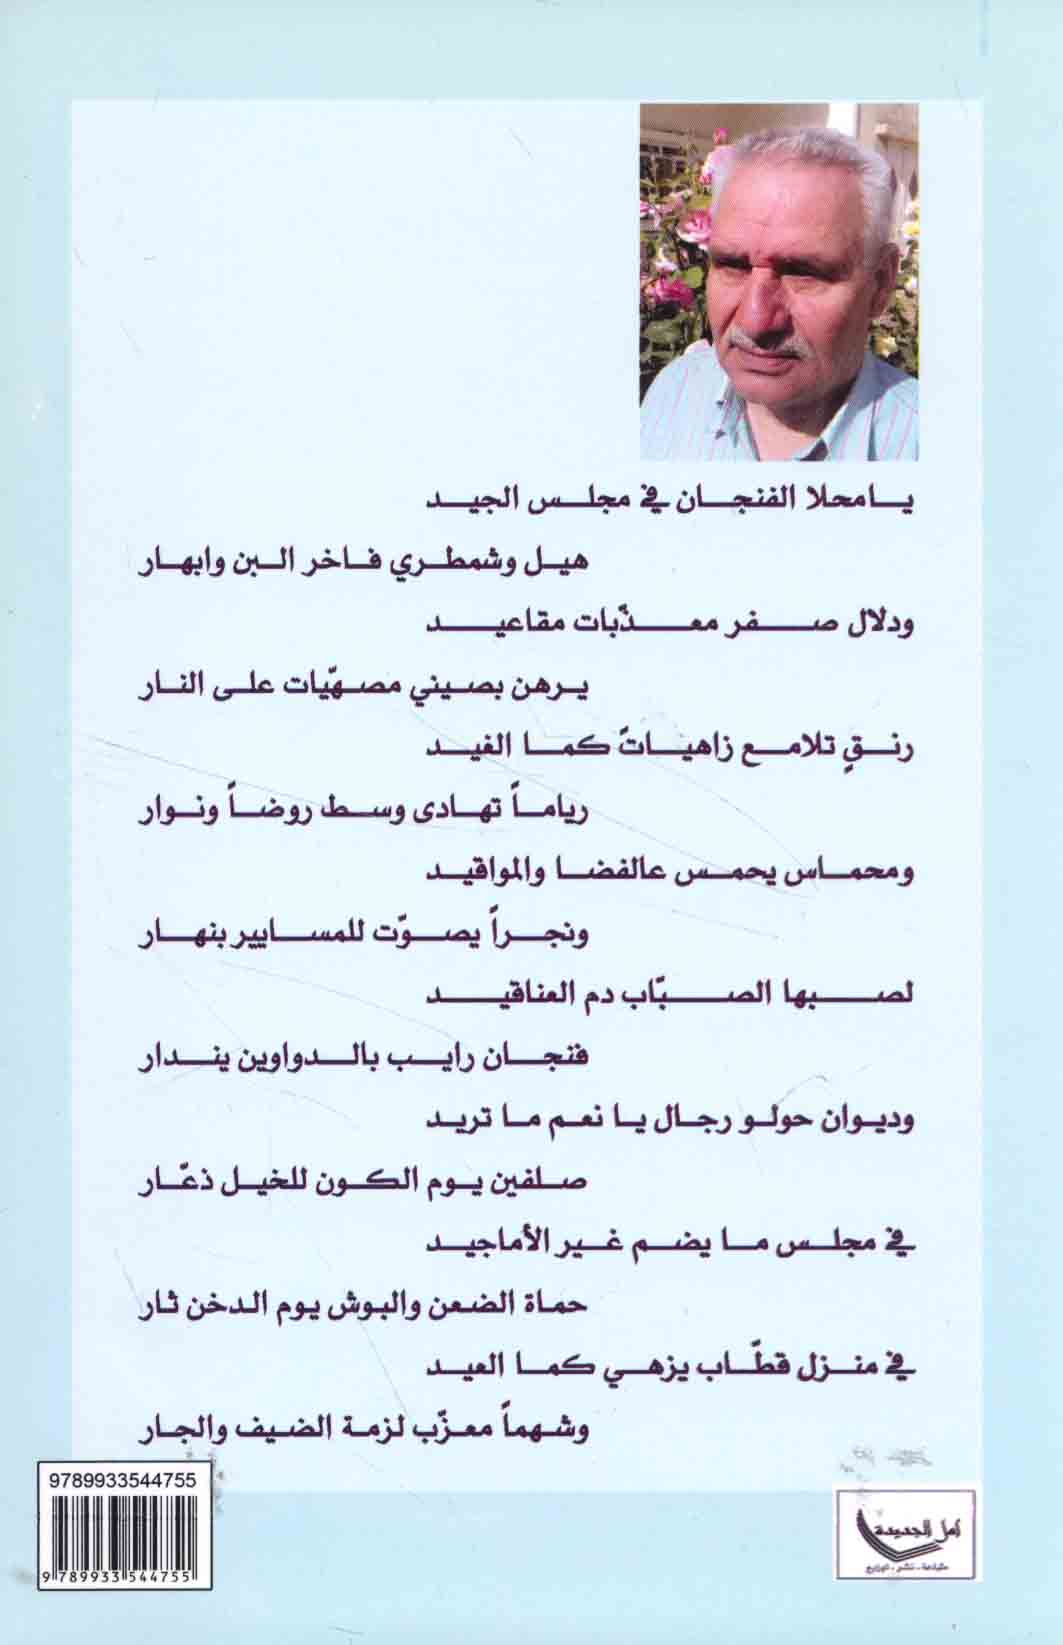 يا محلا الفنجان في مجلس الجيد
هيل وشمطري فاخر البن وابهار
ودلال صفر معذّبات مقاعيد
يرهن بصيني مصهّيات على النار
رنقٍ تلامع زاهياتً كما الغيد
رياماً تهادى وسط روضاً ونوار
ومحماس يحمس عالفضا والمواقيد
ونجراً يصوّت للمسايير بنهار
لصبها الصبّاب دم العناقيد
فنجان رايب بالدواوين يندار
وديوان حولو رجال يا نعم ما تريد
صلفين يوم الكون للخيل ذعّار
في مجلس ما يضم غير الأماجيد
حماة الضعن والبوش يوم الدخن ثار
في منزل قطّاب يزهي كما العيد
وشهماً معزّب لزمة الضيف والجار
9789933544755
9 789933 544755
أمل الجديدة
طباعة - نشر - توزيع